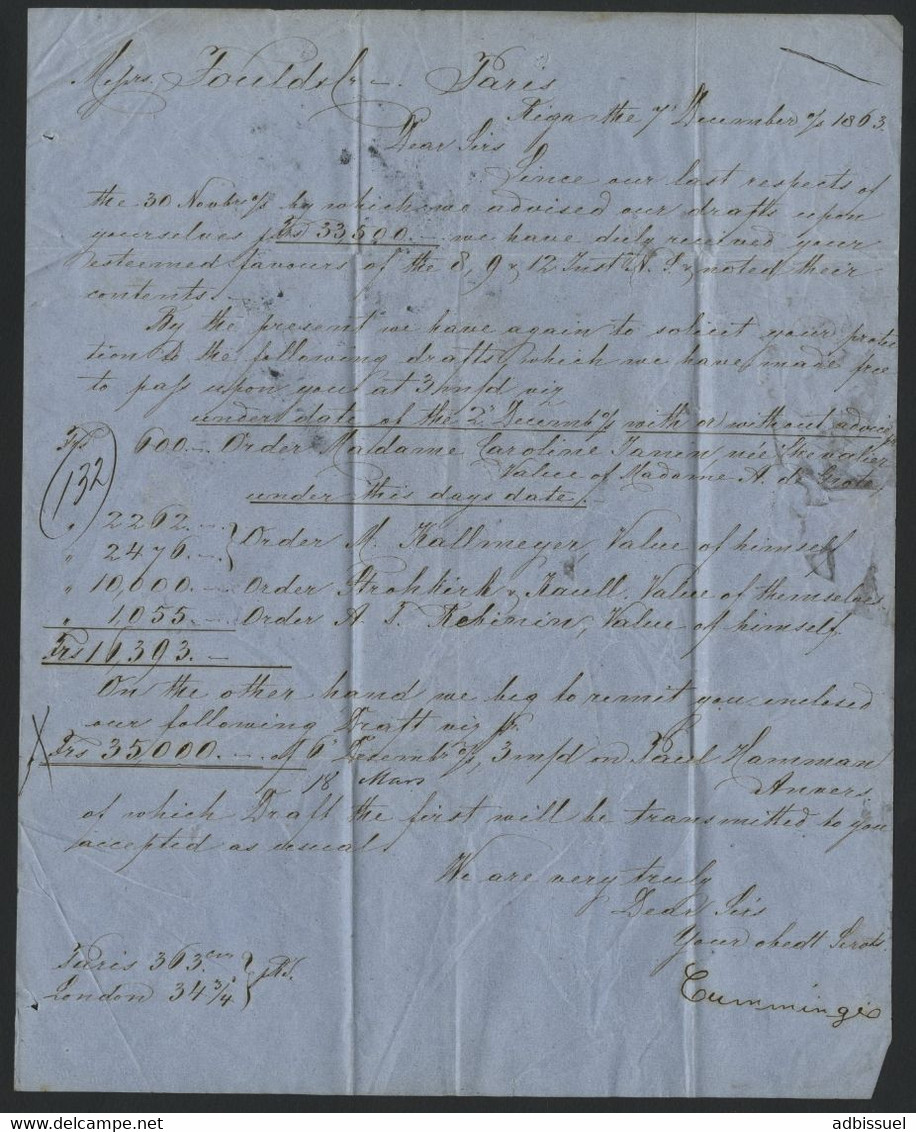 Messrs. Foulds &Co —. Paris
Riga the 7' December o/s 1863.
Dear Sirs
Since our last respects of
the 30 Novbr o/s by which we advised our drafts upon
yourselves frs 53,500.— we have duly received your
esteemed favours of the 8, 9 & 12 Inst N. S. & noted their
contents.—
By the present we have again to solicit your protec
tion to the following drafts, which we have made free
to pass upon you at 3 m/d viz
under date of the 2' Decemb o/s with or without advice
Frs 600.— Order Madame Caroline Janin née
Value of Madame A. de Grote,
under this days date/.
132
" 2262.—
" 2476.— } Order M. Kallmeyer, Value of himself
" 10,000.— Order Strohkirk & Kaull. Value of themselves.
" 1,055.— Order A. T. Value of himself
Frs 16,393.—
On the other hand we beg to remit you enclosed
our following Draft viz
Frs 35,000.— of 6' Decembr o/s, 3 m/d on Paul Hamman
18 Mars Anvers
of which Draft the first will be transmitted to you
accepted as usual.
We are very truly
Dear Sirs
Your obedt Servts
Cummings
Paris 363.
London 34 3/4 }
adbissuel
delcampe.net